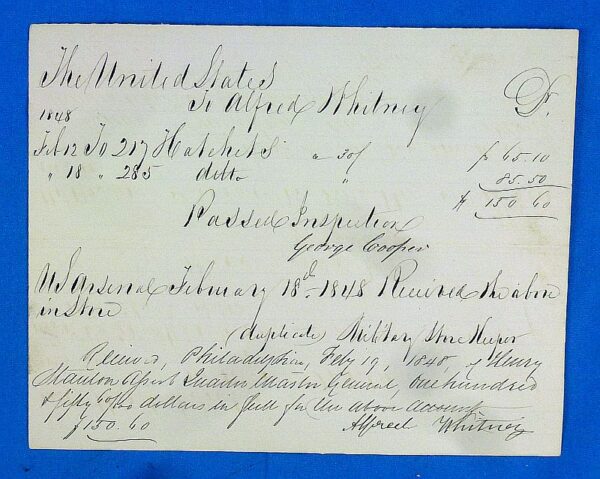 The United States
To Alfred Whitney Dr.
1848
Feb 12 To 217 Hatchets a 30¢ $ 65.10
" 18 " 285 ditto " 85.50
$ 150 60
Passed Inspection
George Cooper
US Arsenal February 18th 1848 Received the above
in store
(duplicate) Military Store Keeper
Received, Philadelphia, Feby 19, 1848, of Henry
Stanton Assist Quarter Master General, One hundred
& fifty 60/100 dollars in full for the above account
$150.60 Alfred Whitney